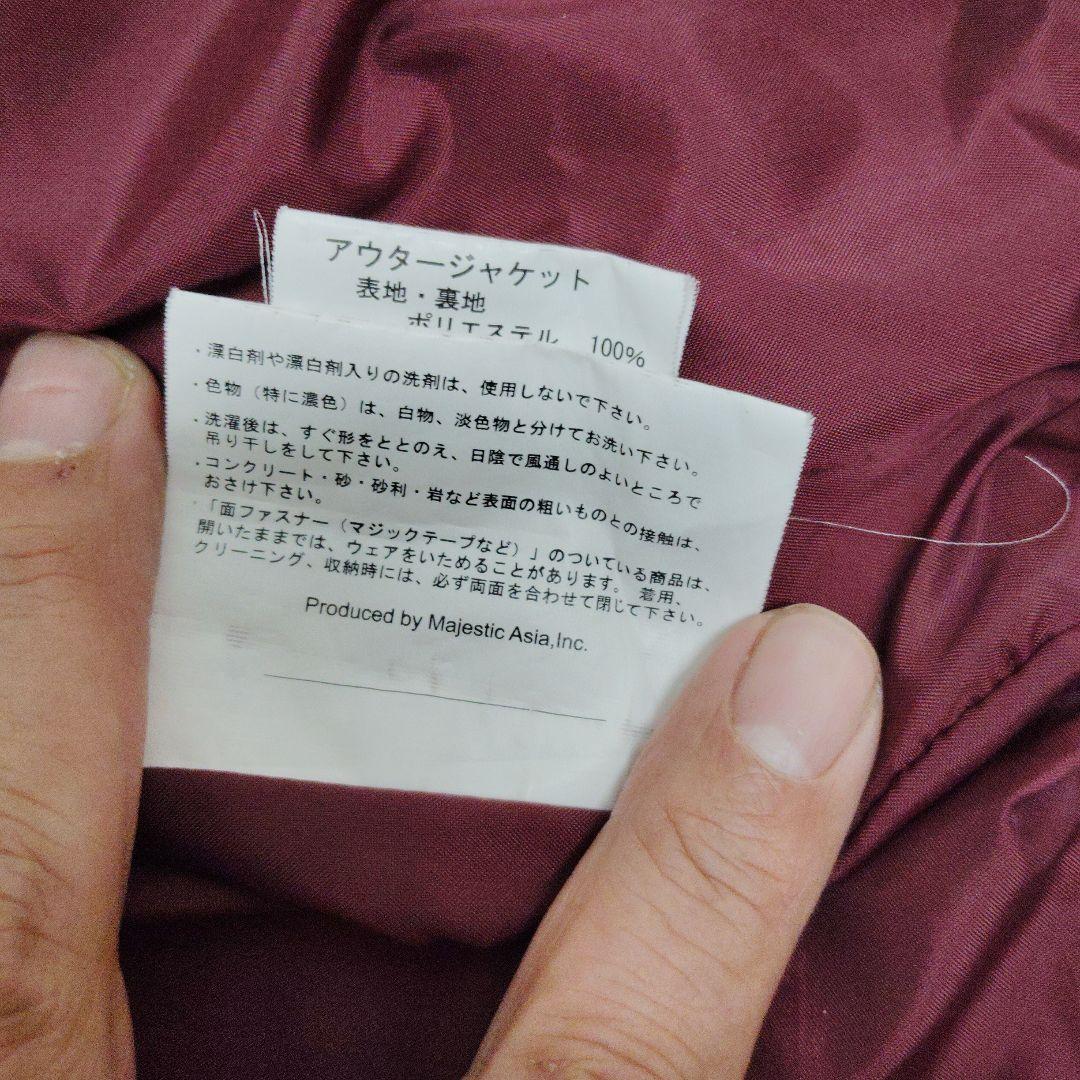 アウタージャケット
表地・裏地
ポリエステル 100%
・漂白剤や漂白剤入りの洗剤は、使用しないで下さい。
・色物（特に濃色）は、白物、淡色物と分けてお洗い下さい。
・洗濯後は、すぐ形をととのえ、日陰で風通しのよいところで
吊り干しをして下さい。
・コンクリート・砂・砂利・岩など表面の粗いものとの接触は、
おさけ下さい。
・「面ファスナー（マジックテープなど）」のついている商品は、
開いたままでは、ウェアをいためることがあります。 着用、
クリーニング、収納時には、必ず両面を合わせて閉じて下さい。
Produced by Majestic Asia,Inc.